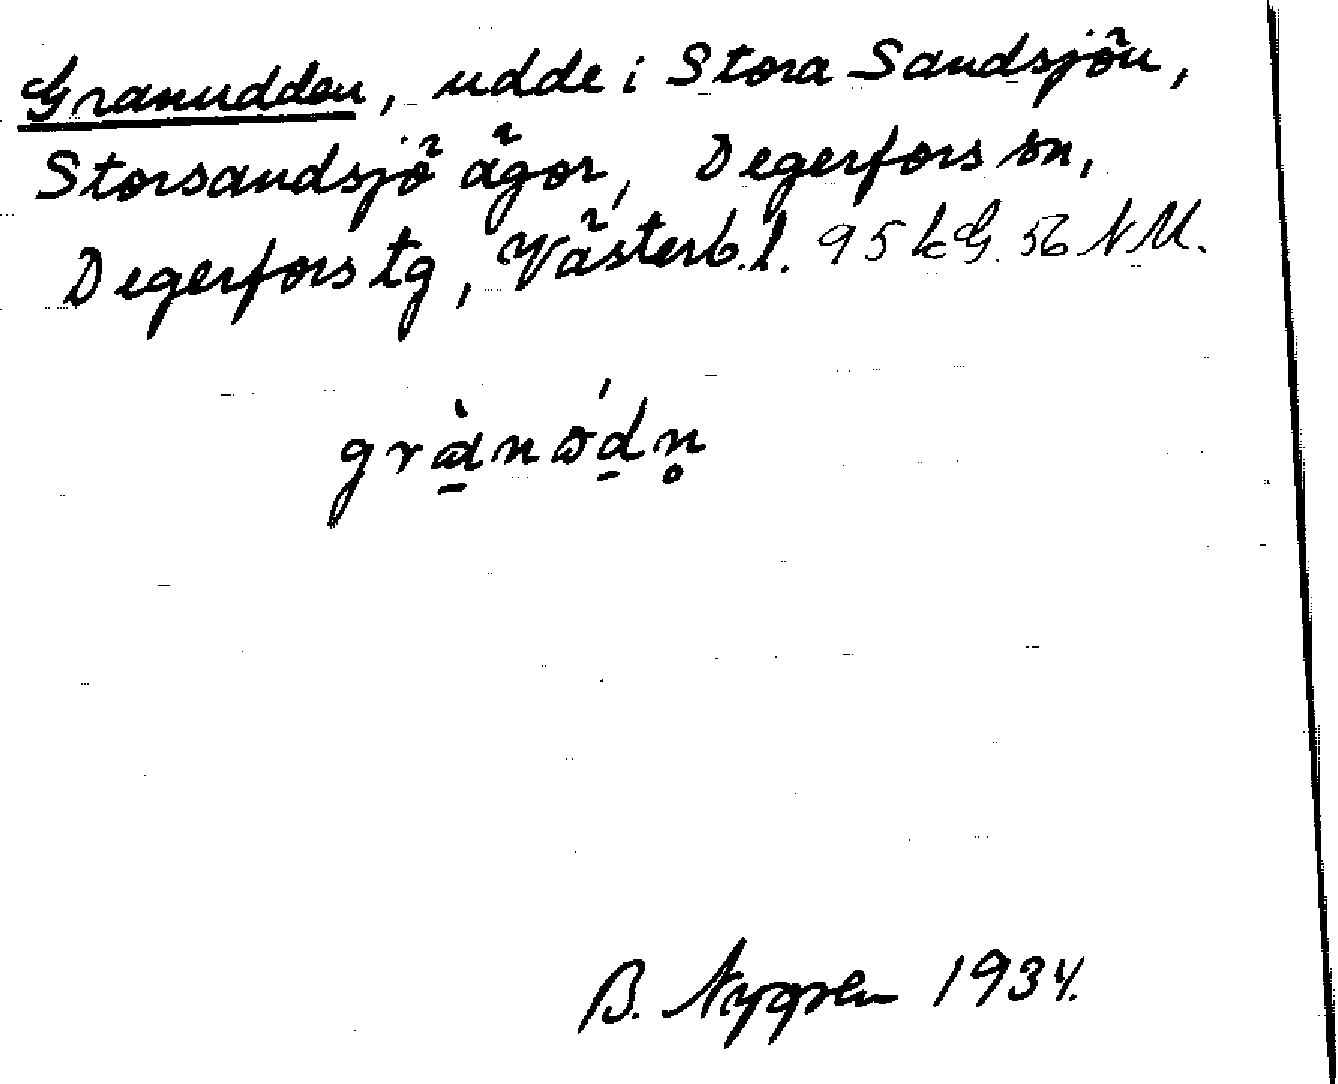 Granudden, udde i Stora Sandsjön,
Storsandsjö ägor, Degerfors sn,
Degerfors tg, Västerb. l. 95 kG. 56 N M.
grànώdn̥
B. Nygren 1934.